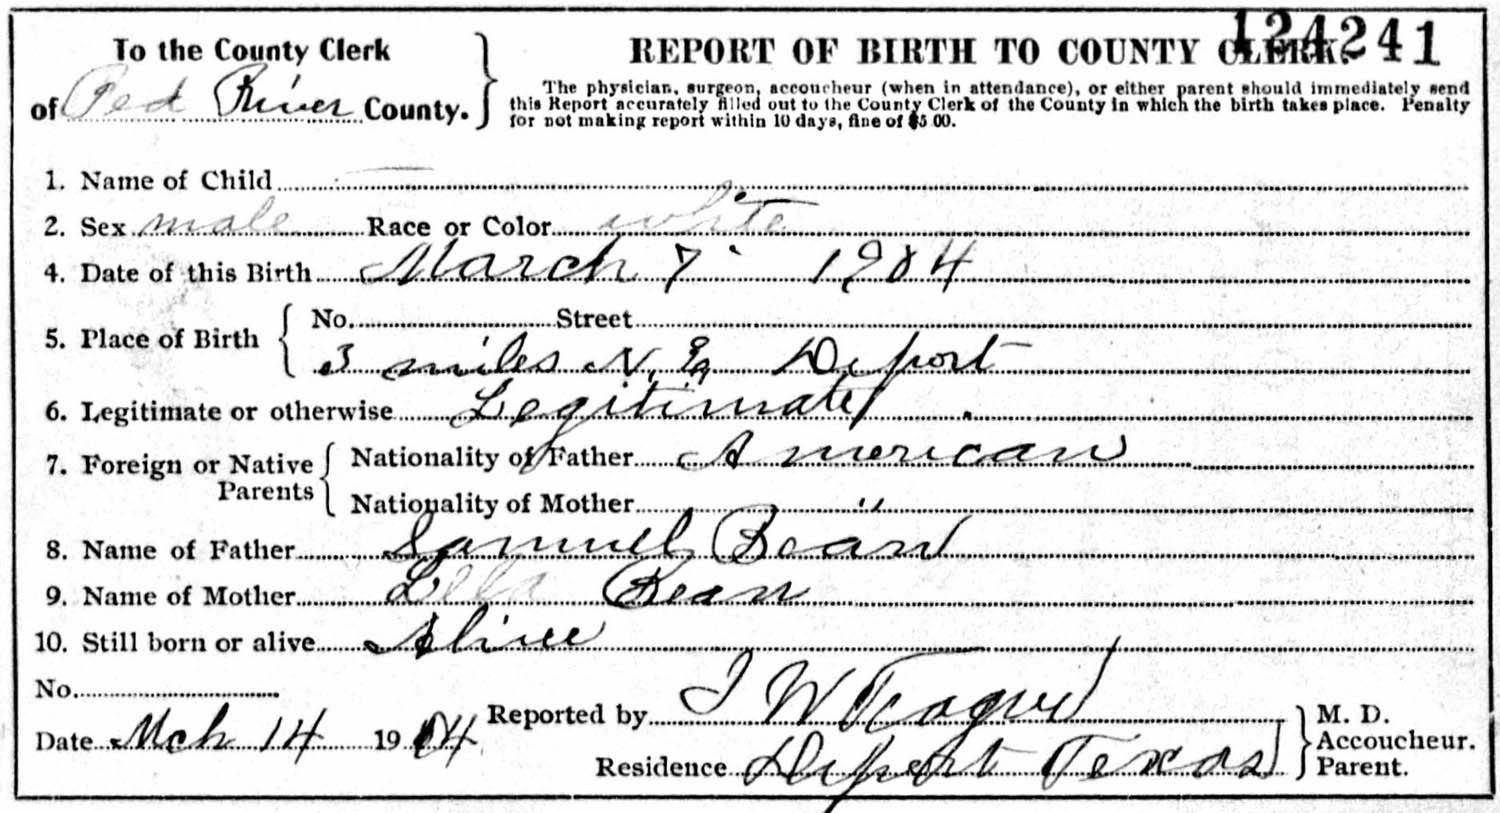 124241
To the County Clerk
of Red River County.
REPORT OF BIRTH TO COUNTY CLERK.
The physician, surgeon, accoucheur (when in attendance), or either parent should immediately send
this Report accurately filled out to the County Clerk of the County in which the birth takes place. Penalty
for not making report within 10 days, fine of $5 00.
1. Name of Child
2. Sex male Race or Color white
4. Date of this Birth March 7 1904
5. Place of Birth
No. Street
3 miles N. E. Deport
6. Legitimate or otherwise Legitimate
7. Foreign or Native Parents
Nationality of Father American
Nationality of Mother "
8. Name of Father Samuel Bean
9. Name of Mother Lela Bean
10. Still born or alive Alive
No.
Date Mch 14 1904
Reported by J W Teague
Residence Deport Texas
M. D.
Accoucheur.
Parent.